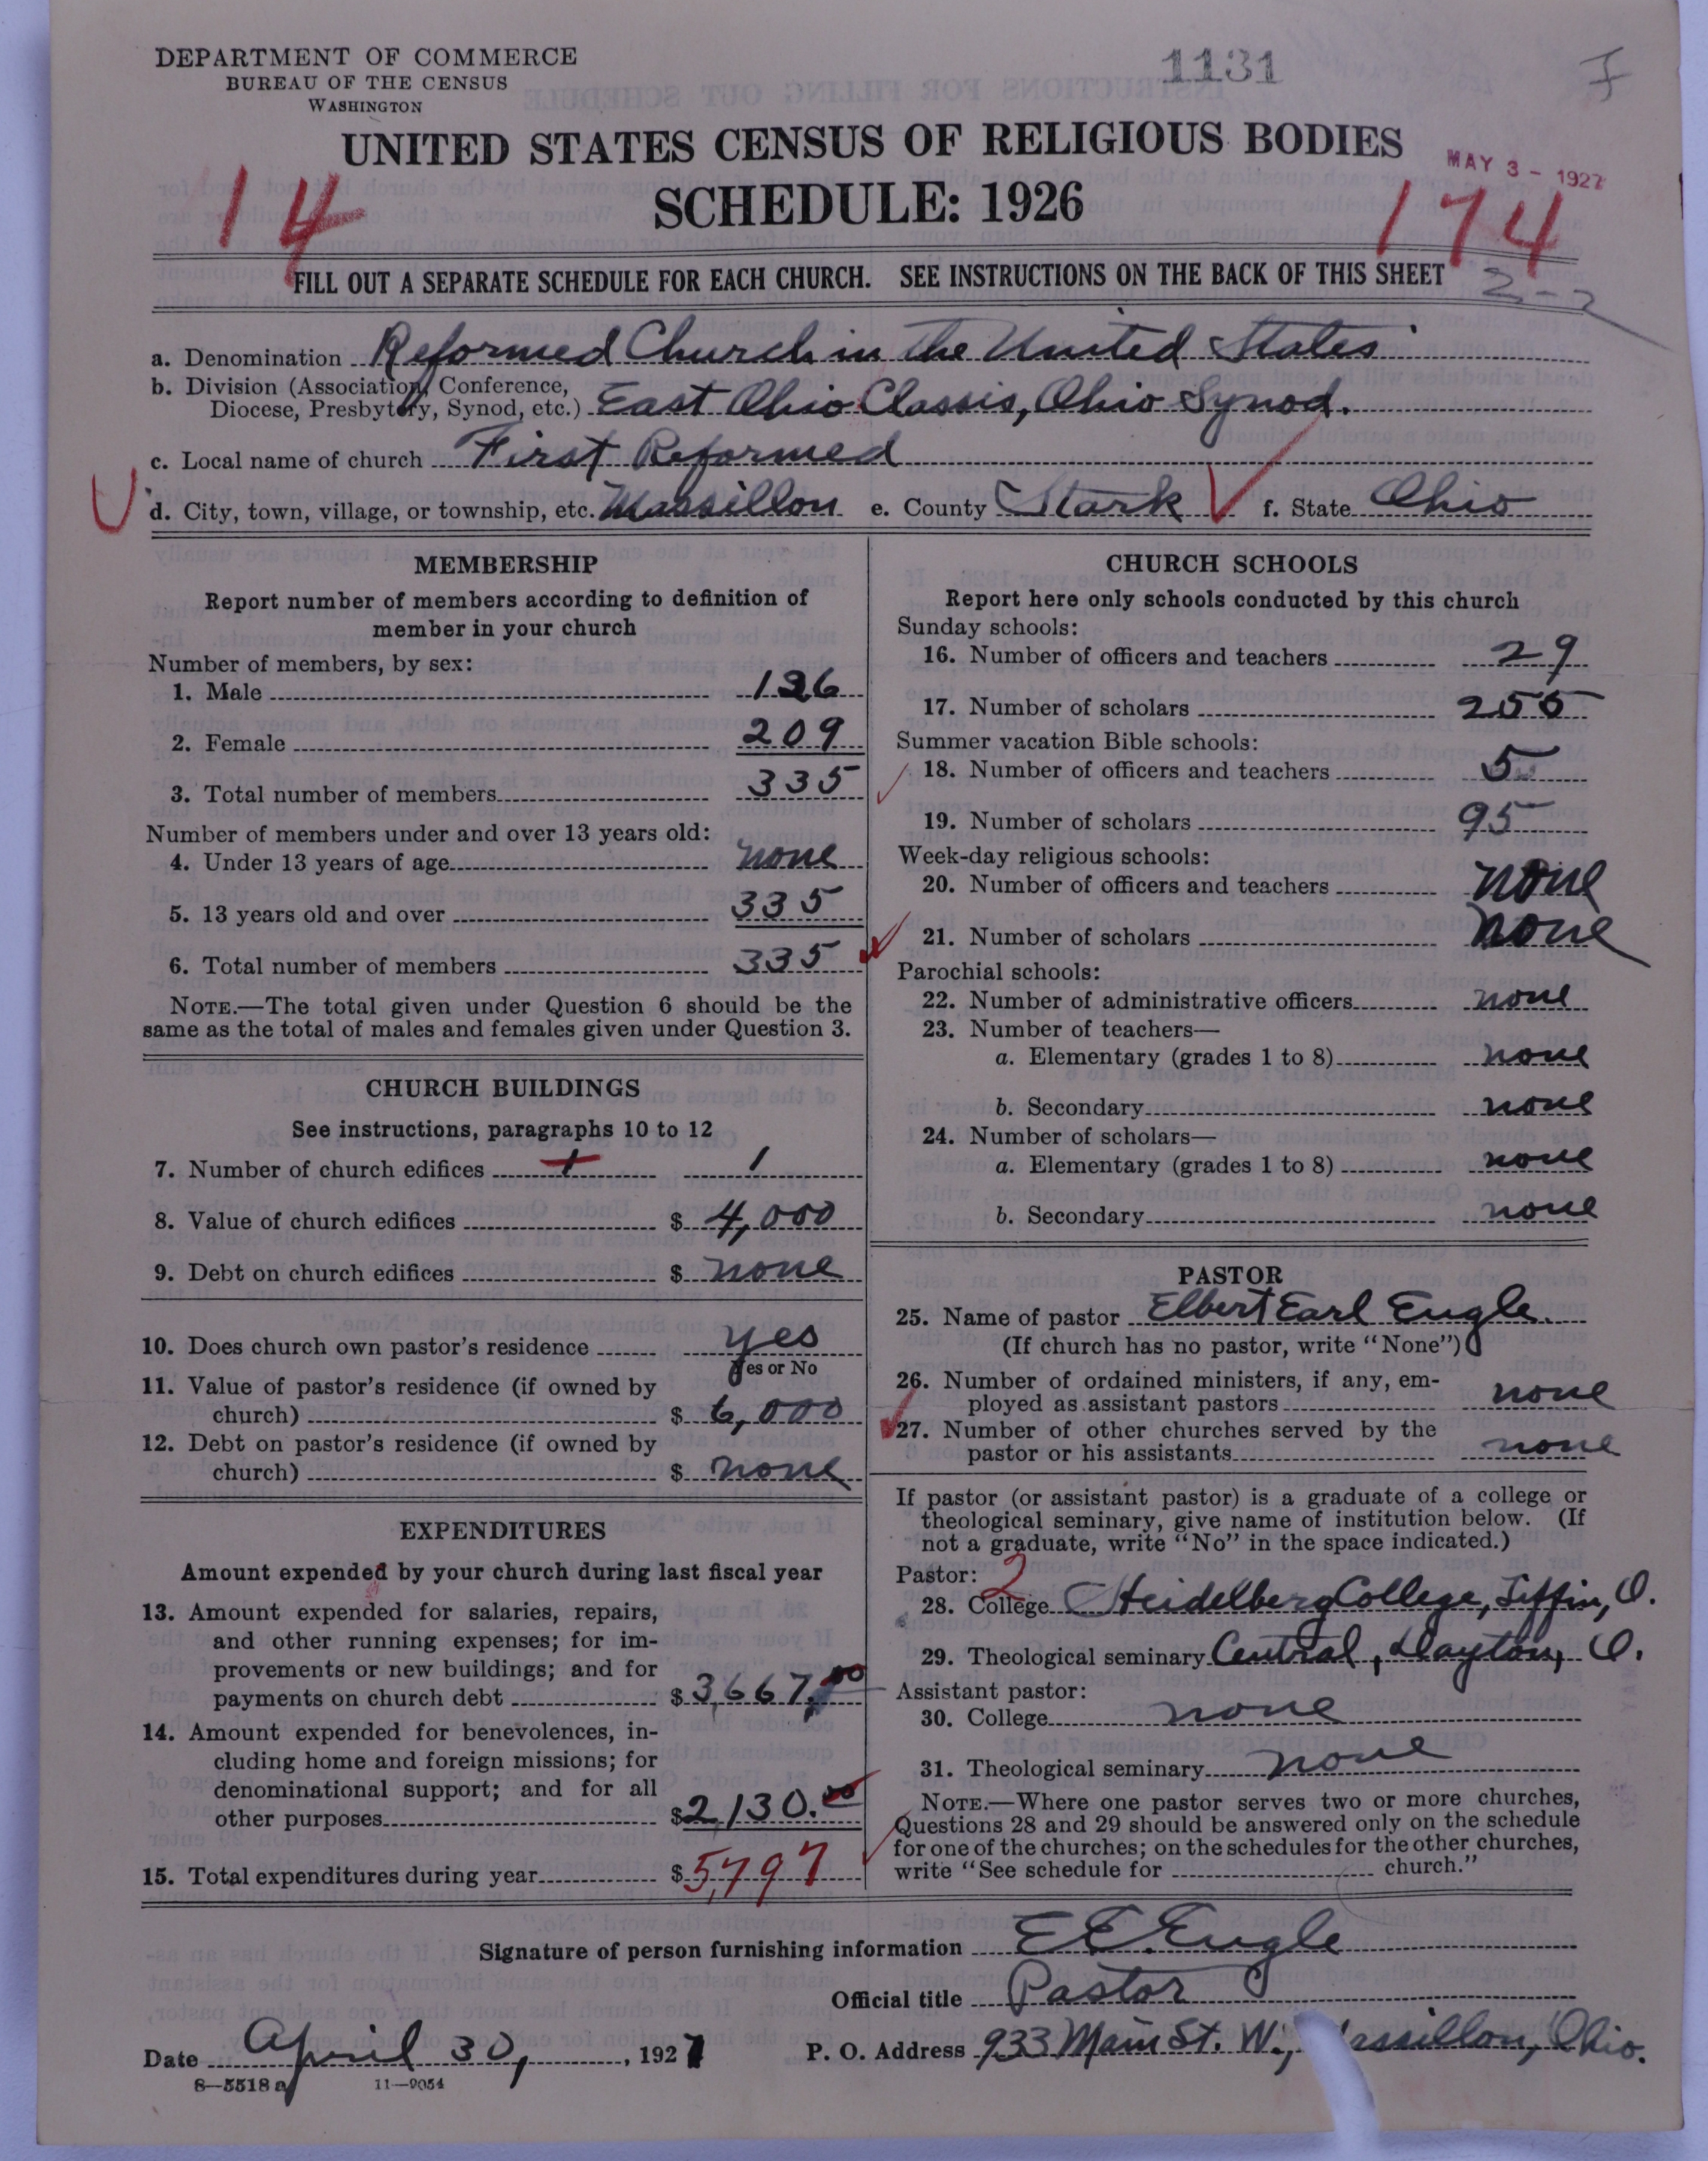 DEPARTMENT OF COMMERCE
BUREAU OF THE CENSUS
WASHINGTON
1131
UNITED STATES CENSUS OF RELIGIOUS BODIES
SCHEDULE: 1926
MAY 3 - 1927
14
174
FILL OUT A SEPARATE SCHEDULE FOR EACH CHURCH. SEE INSTRUCTIONS ON THE BACK OF THIS SHEET
a. Denomination Reformed Church in the United States
b. Division (Association, Conference,
Diocese, Presbytery, Synod, etc.) East Ohio Classis, Ohio Synod.
c. Local name of church First Reformed
d. City, town, village, or township, etc. Massillon e. County Stark f. State Ohio
MEMBERSHIP
Report number of members according to definition of
member in your church
Number of members, by sex:
1. Male 126
2. Female 209
3. Total number of members 335
Number of members under and over 13 years old:
4. Under 13 years of age none
5. 13 years old and over 335
6. Total number of members 335
NOTE.—The total given under Question 6 should be the
same as the total of males and females given under Question 3.
CHURCH BUILDINGS
See instructions, paragraphs 10 to 12
7. Number of church edifices 1 1
8. Value of church edifices $ 4,000
9. Debt on church edifices $ none
10. Does church own pastor's residence yes
Yes or No
11. Value of pastor's residence (if owned by
church) $ 6,000
12. Debt on pastor's residence (if owned by
church) $ none
EXPENDITURES
Amount expended by your church during last fiscal year
13. Amount expended for salaries, repairs,
and other running expenses; for im-
provements or new buildings; and for
payments on church debt $ 3,667.00
14. Amount expended for benevolences, in-
cluding home and foreign missions; for
denominational support; and for all
other purposes $ 2,130.00
15. Total expenditures during year $ 5,797
CHURCH SCHOOLS
Report here only schools conducted by this church
Sunday schools:
16. Number of officers and teachers 29
17. Number of scholars 255
Summer vacation Bible schools:
18. Number of officers and teachers 5
19. Number of scholars 95
Week-day religious schools:
20. Number of officers and teachers none
21. Number of scholars none
Parochial schools:
22. Number of administrative officers none
23. Number of teachers—
a. Elementary (grades 1 to 8) none
b. Secondary none
24. Number of scholars—
a. Elementary (grades 1 to 8) none
b. Secondary none
PASTOR
25. Name of pastor Elbert Earl Engle.
(If church has no pastor, write "None")
26. Number of ordained ministers, if any, em-
ployed as assistant pastors none
27. Number of other churches served by the
pastor or his assistants none
If pastor (or assistant pastor) is a graduate of a college or
theological seminary, give name of institution below. (If
not a graduate, write "No" in the space indicated.)
Pastor: 2
28. College Heidelberg College, Tiffin, O.
29. Theological seminary Central, Dayton, O.
Assistant pastor:
30. College none
31. Theological seminary none
NOTE.—Where one pastor serves two or more churches,
Questions 28 and 29 should be answered only on the schedule
for one of the churches; on the schedules for the other churches,
write "See schedule for church."
Signature of person furnishing information E E. Engle
Official title Pastor
Date April 30, 1927 P. O. Address 933 Main St. W., Massillon, Ohio.
8—5518 a 11—9054